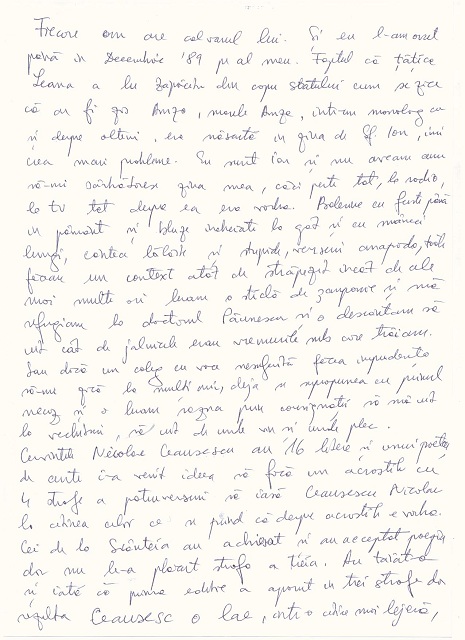 Fiecare om are calvarul lui. Și eu l-am avut
până în Decembrie '89 pe al meu. Faptul că țățica
Leana a lu' Zăpăcitu din capu statului cum se zice
că ar fi zis Anza, marele Anza, într-un monolog cu
și despre olteni, era născută în ziua de Sf. Ion, îmi
crea mari probleme. Eu sunt Ion și nu aveam cum
să-mi sărbătoresc ziua mea, căci peste tot, la radio,
la tv tot despre ea era vorba. Bolerne cu fuste până
în pământ și bluze încheiate la gât și cu mâneci
lungi, contea lălâie și stupide, versuri anapoda, toate
făceau un context atât de străpezit încât de cele
mai multe ori luam o sticlă de zampanie și mă
refugiam la doctorul Păunescu și o deșertam să
uit cât de jalnice erau vremurile sub care trăiam.
Sau dacă un coleg cu voce nesfârșită făcea imprudența
să-mi zică la mulți ani, deja se apropia cu primul
necaz și o luam razna prin consignații să mă uit
la vechituri, să uit de unde vin și unde plec.
Cuvintele Nicolae Ceausescu au 16 litere și unui poetaș
de curte i-a venit ideea să facă un acrostih cu
4 strofe a patru versuri să iasă Ceausescu Nicolae
la citirea celor ce-și prind că despre acrostih e vorba.
Cei de la Scânteia au achiesat și au acceptat poezia
dar nu le-a plăcut strofa a treia. Au tăiat-o
și iată că prima editie a apărut în trei strofe dar
rezulta Ceausesc o lae, într-o citire mai lejeră,